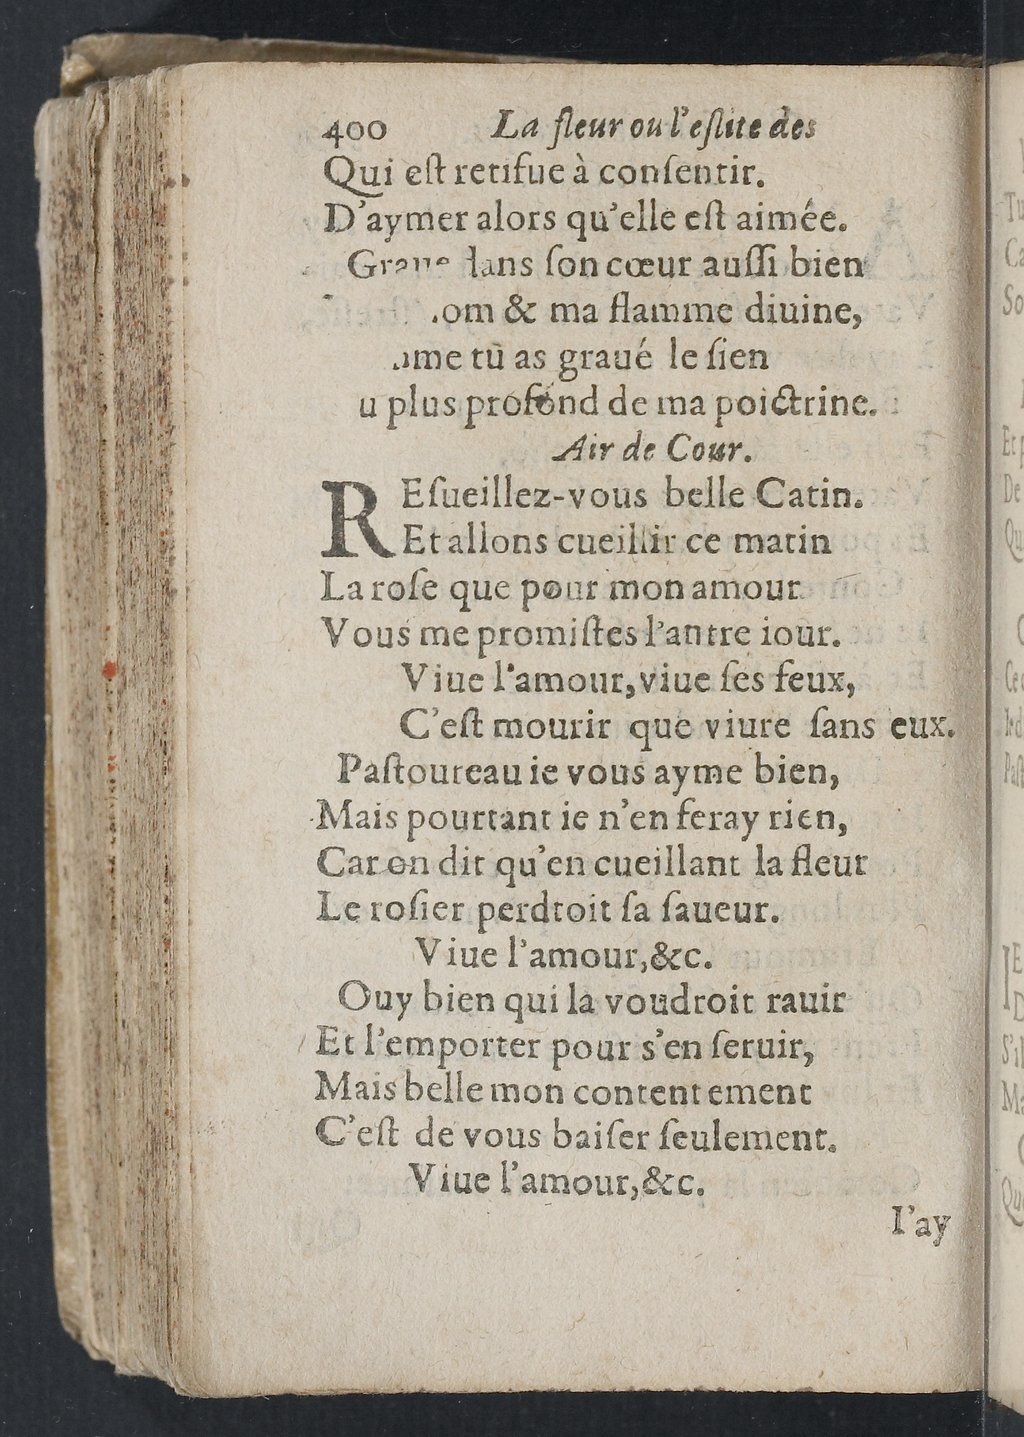 400 La fleur ou l'eslite des
Qui eſt retifue à conſentir.
D'aymer alors qu'elle eſt aimée.
Graue dans ſon cœur auſſi bien
om & ma flamme diuine,
me tu as graué le ſien
u plus profond de ma poictrine.
Air de Cour.
REſueillez-vous belle Catin.
Et allons cueillir ce matin
La roſe que pour mon amour
Vous me promiſtes l'autre iour.
Viue l'amour, viue ſes feux,
C'eſt mourir que viure ſans eux.
Paſtoureau ie vous ayme bien,
Mais pourtant ie n'en feray rien,
Car on dit qu'en cueillant la fleur
Le roſier perdroit ſa ſaueur.
Viue l'amour, &c.
Ouy bien qui la voudroit rauir
Et l'emporter pour s'en ſeruir,
Mais belle mon contentement
C'eſt de vous baiſer ſeulement.
Viue l'amour, &c.
I'ay